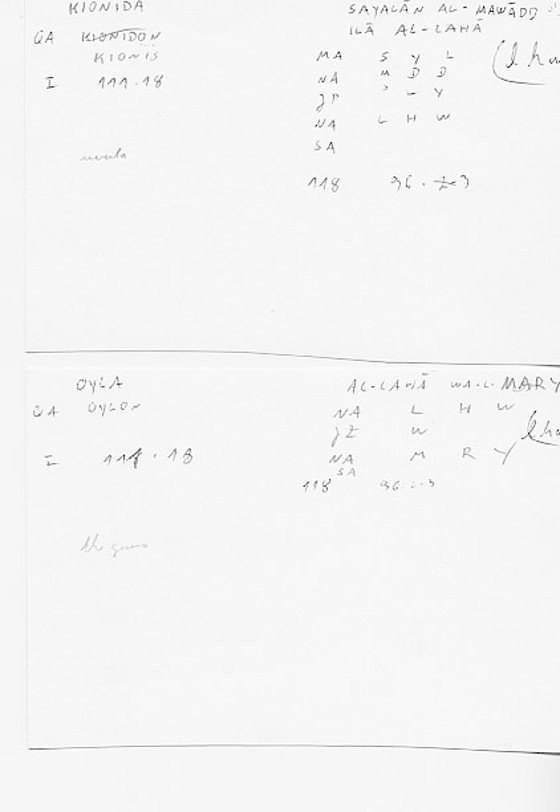 KIONIDA
SAYALĀN AL-MAWĀDD
ILĀ AL-LAHĀ
QA KIONIDON
KIONIS
I 111.18
MA S Y L
NA M D D
JP ʾ L Y
NA L H W
SA
118 36.
uvula
OYLA
AL-LAHĀ WA-L-MARY
QA OYLON
NA L H W
JZ W
I 111.18
NA M R Y
SA
118 36.2-3
the gums